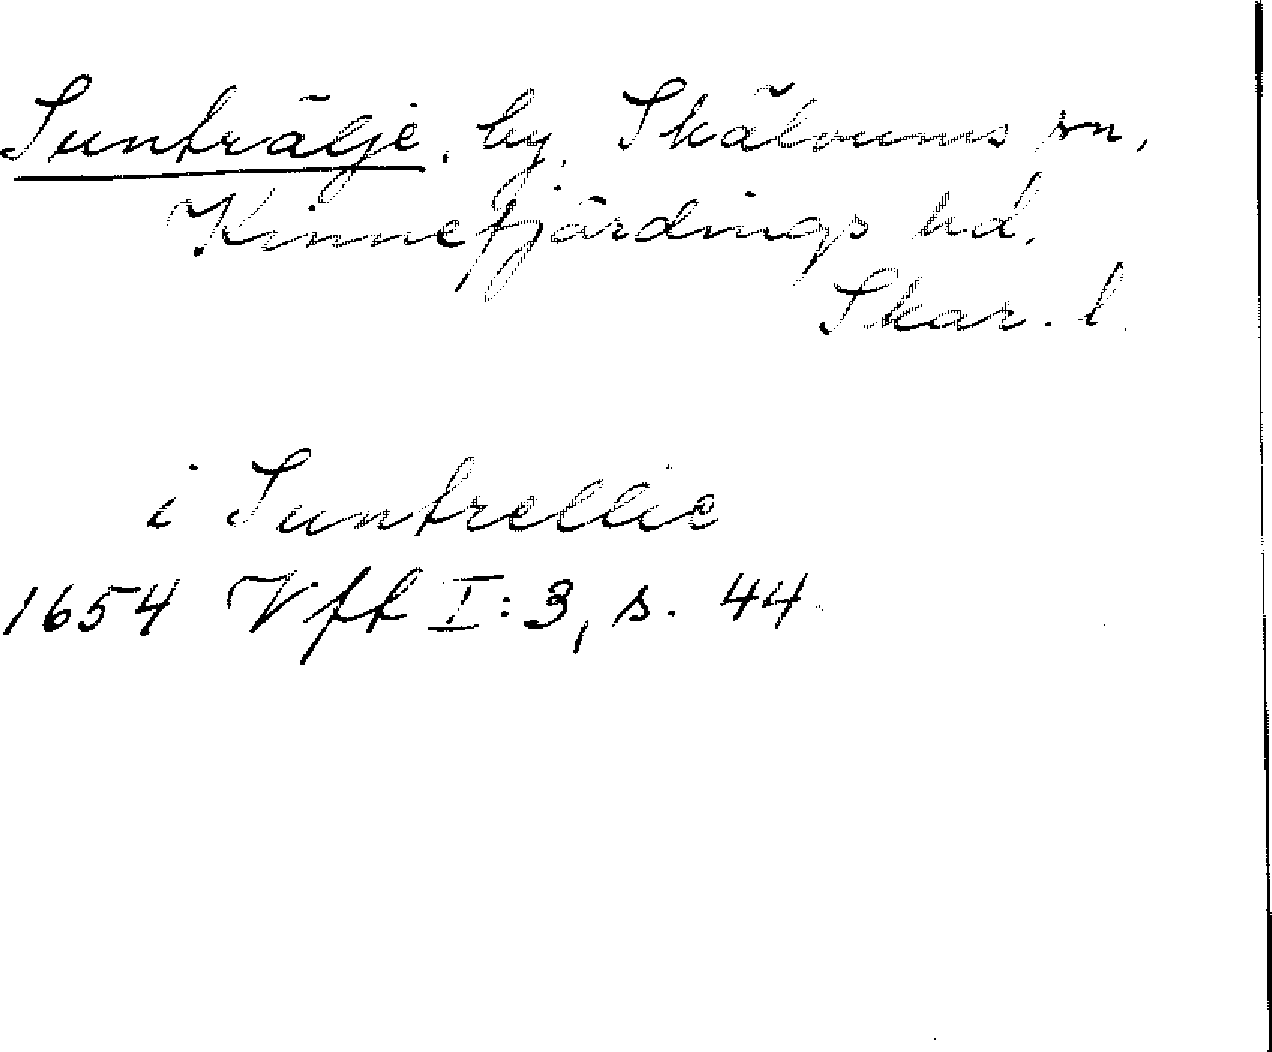 Sunträlje, by, Skälvums sn,
Kinnefjärdings hd.
Skar. l.
i Suntrellie
1654 Vfk I:3, s. 44.